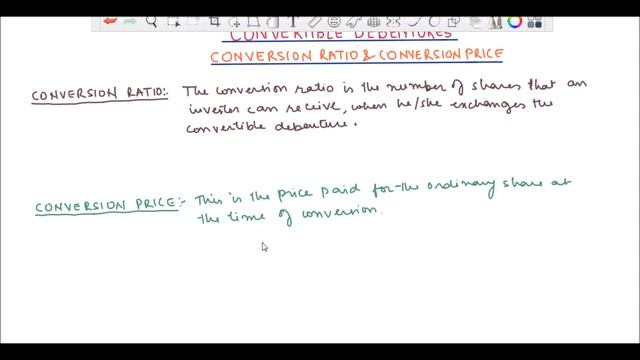 CONVERTIBLE DEBENTURES
CONVERSION RATIO & CONVERSION PRICE
CONVERSION RATIO:- The conversion ratio is the number of shares that an
investor can receive, when he/she exchanges the
convertible debenture.
CONVERSION PRICE:- This is the price paid for the ordinary share at
the time of conversion.